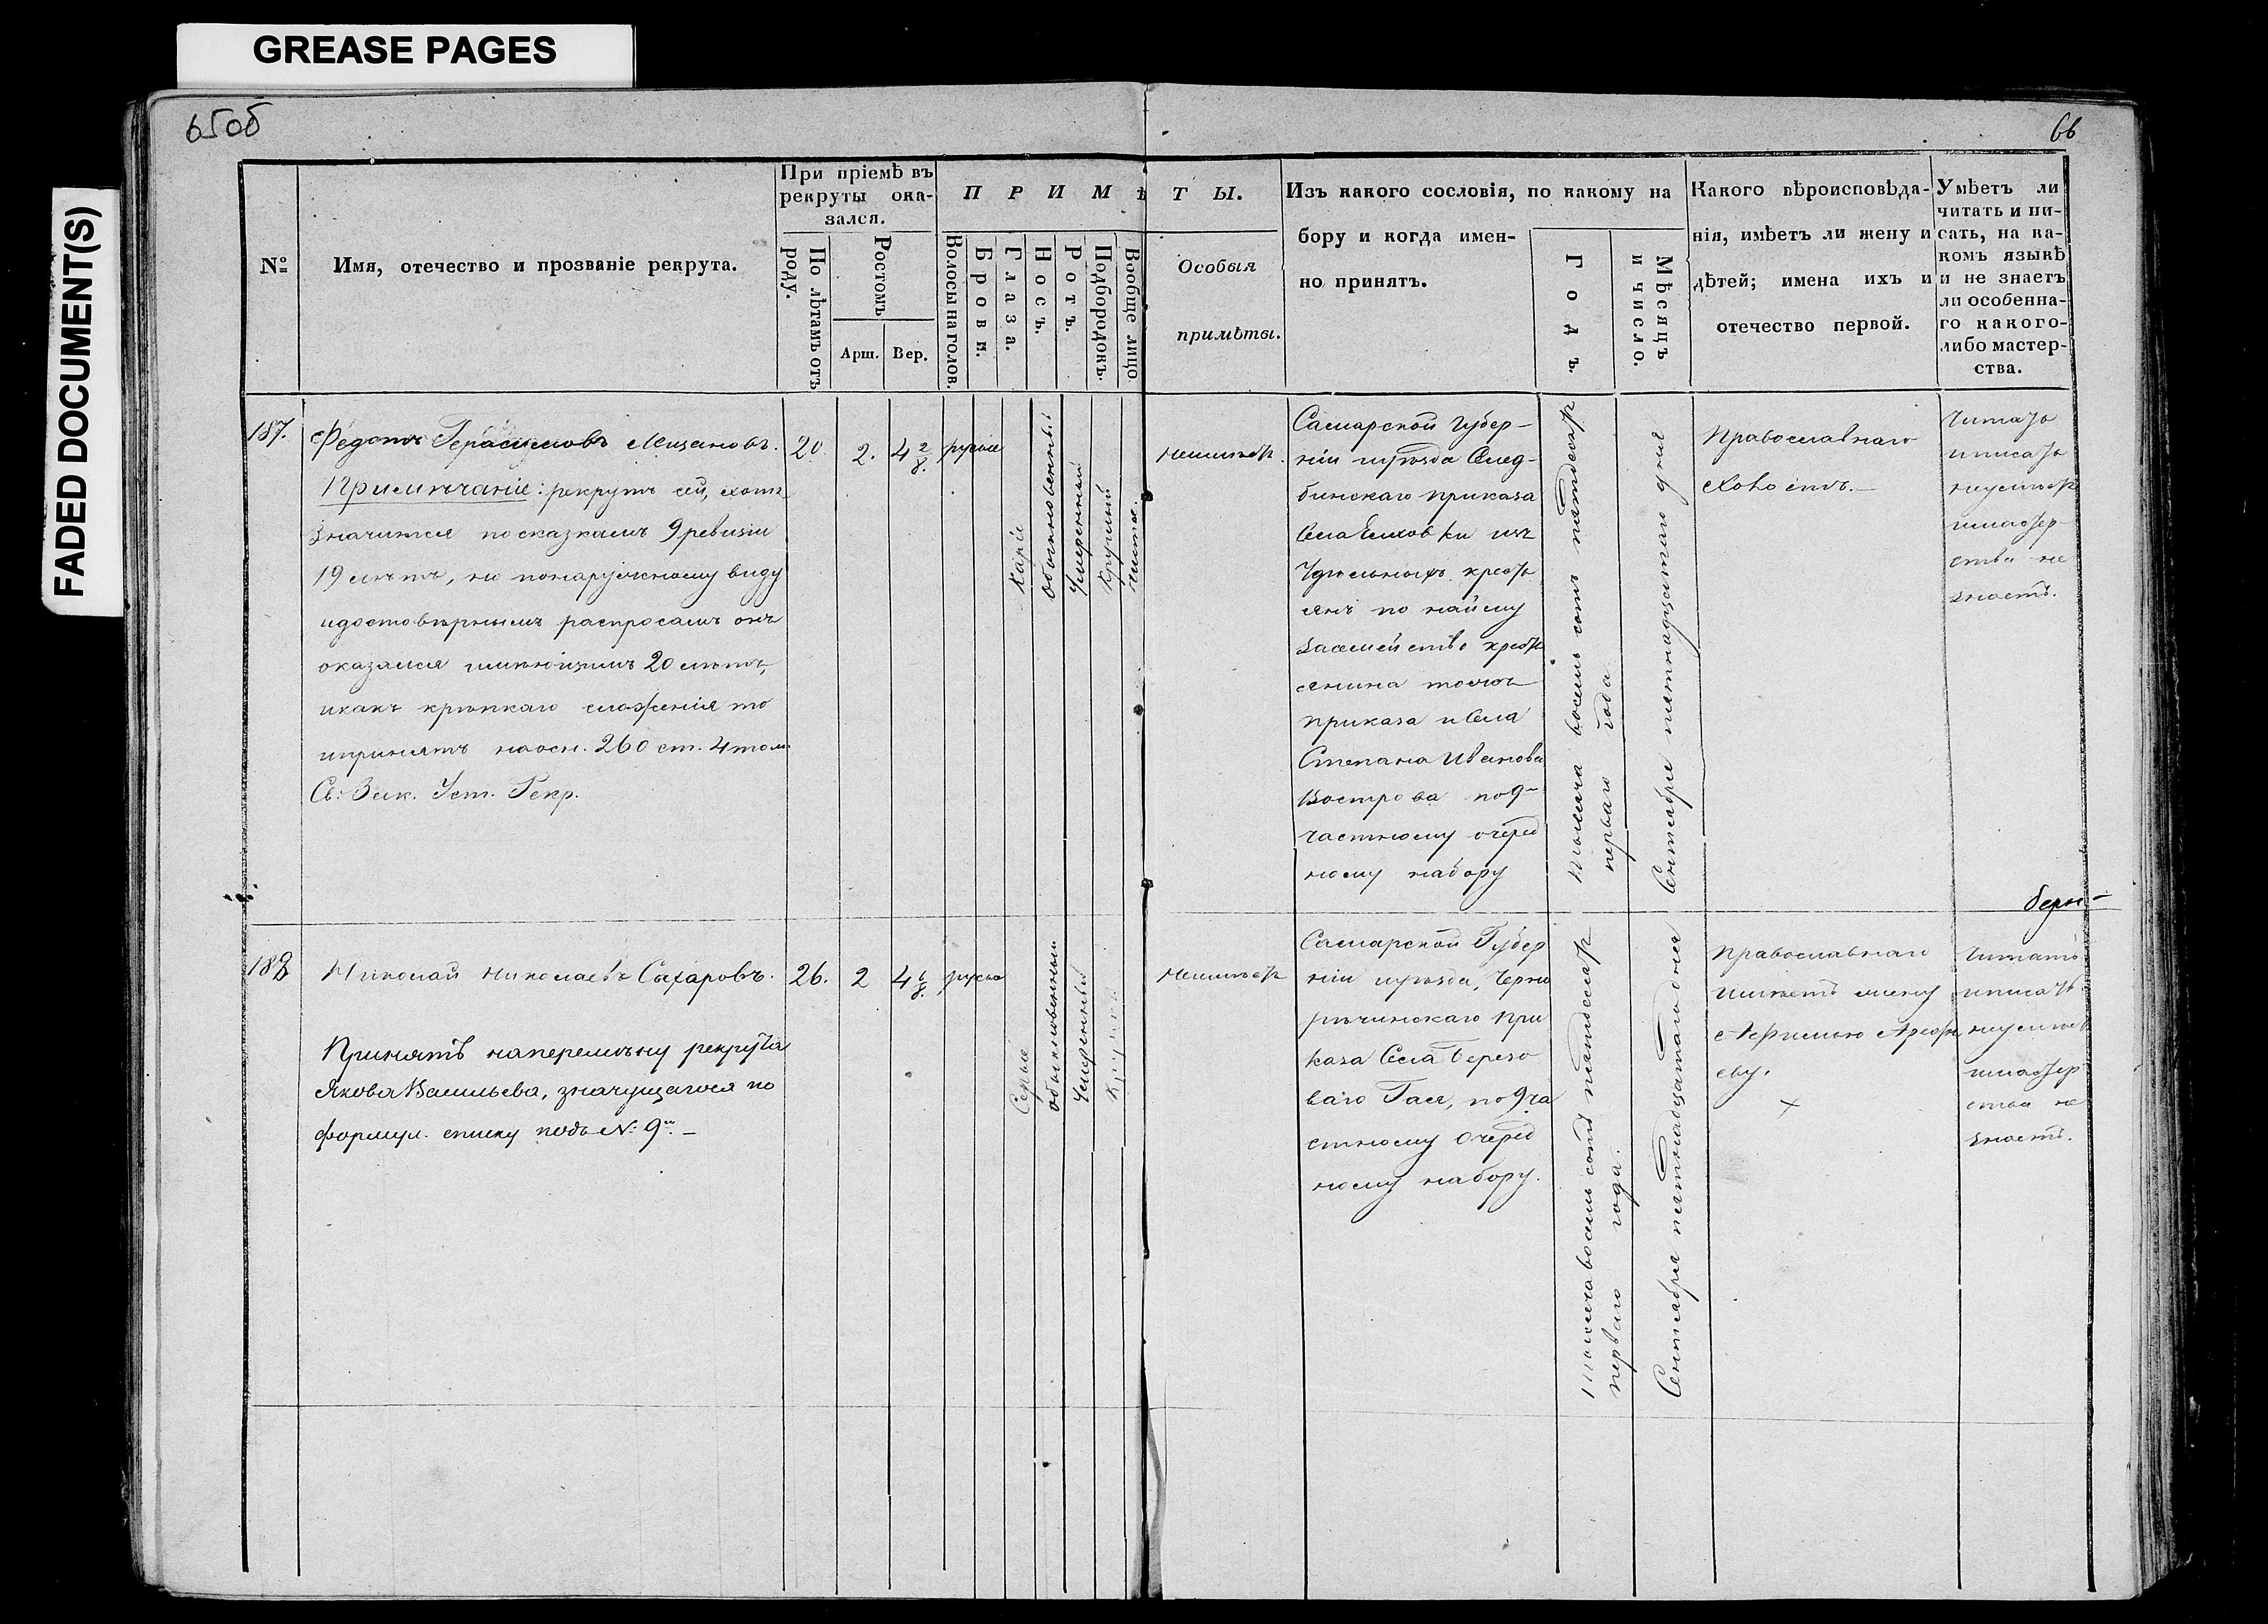 GREASE PAGES
FADED DOCUMENT(S)
65об
66
№
Имя, отечество и прозваніе рекрута.
При пріемѣ въ
рекруты ока-
зался.
По лѣтамъ отъ
роду.
Ростомъ
Арш.
Вер.
ПРИМѢТЫ.
Волосы на голов.
Брови.
Глаза.
Носъ.
Ротъ.
Подбородокъ.
Вообще лицо
Особыя
примѣты.
Изъ какого сословія, по какому на
бору и когда имен-
но принятъ.
Годъ.
Мѣсяцъ
и число.
Какого вѣроисповѣда-
нія, имѣетъ ли жену и
дѣтей; имена ихъ и
отечество первой.
Умѣетъ ли
читать и пи-
сать, на ка-
комъ языкѣ
и не знаетъ
ли особенна-
го какого-
либо мастер-
ства.
187.
Федотъ Герасимовъ Мизановъ.
Примѣчаніе: рекрутъ сей, хотя
значится по сказкамъ 9 ревизіи
19 лѣтъ, но по наружному виду
и достовѣрнымъ распросамъ онъ
оказался имѣющимъ 20 лѣтъ,
и какъ крѣпкаго сложенія то
и принятъ на осн. 260 ст. 4 том.
Св. Зак. Уст. Рекр.
20
2.
4 2/8.
русые
Каріе
Обыкновенный
Умеренный
Круглый
чистое.
неимѣетъ.
Самарской Губер-
ніи и уѣзда
приказа
Села Елховки изъ
Удѣльныхъ кресть
янъ по найму
за семейство кресть
янина того
приказа и Села
Степана Иванова
Вострова по 9
частному очеред
ному набору
Тысяча восемь сотъ пятдесятъ
перваго года
Сентября пятнадцатаго дня
Православнаго
Холостъ.
Читать
и писать
неумѣетъ
и мастер-
ства не
знаетъ.
188
Николай Николаевъ Сахаровъ.
Принятъ наперемѣну рекрута
Якова Васильева, значущагося по
формул. списку подъ №: 9м. –
26.
2
4 6/8.
русые
Серые
обыкновенный
Умеренный
Круглый
неимѣетъ
Самарской Губер
ніи и уѣзда, Черно
рѣчинскаго При
каза Села Березо
ваго Гая, по 9 ча
стному Очеред
ному набору.
Тысяча восемь сотъ пятдесятъ
перваго года.
Сентября пятнадцатаго дня
Православнаго
имѣетъ жену
еву.
Читать
и писать
неумѣетъ
и мастер
ства не
знаетъ.